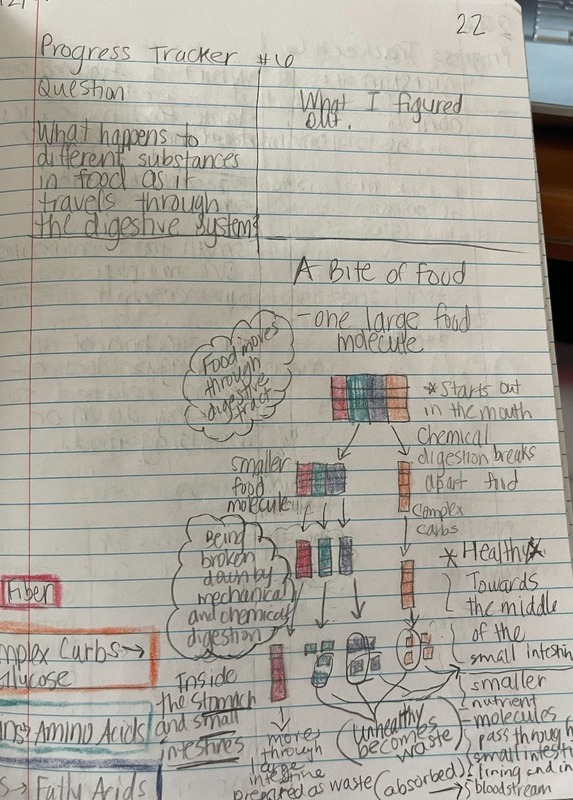 22
Progress Tracker #6
Question
What happens to
different substances
in food as it
travels through
the digestive system?
What I figured
out.
A Bite of Food
-one large food
molecule
Food moves
through
digestive
tract
*Starts out
in the mouth
Chemical
digestion breaks
apart food
complex
carbs
smaller
food
molecule
Being
broken
down by
mechanical
and chemical
digestion
*Healthy*
Towards
the middle
of the
small intestin
Fiber
mplex Carbs→
Glucose
ins→ Amino Acids
s→ Fatty Acids
Inside
the stomach
and small
intestines
moves
through
large
intestine
prepared as waste
(Unhealthy
becomes
waste)
(absorbed)
smaller
nutrient
molecules
pass through
small intesti
lining and in
→ bloodstream